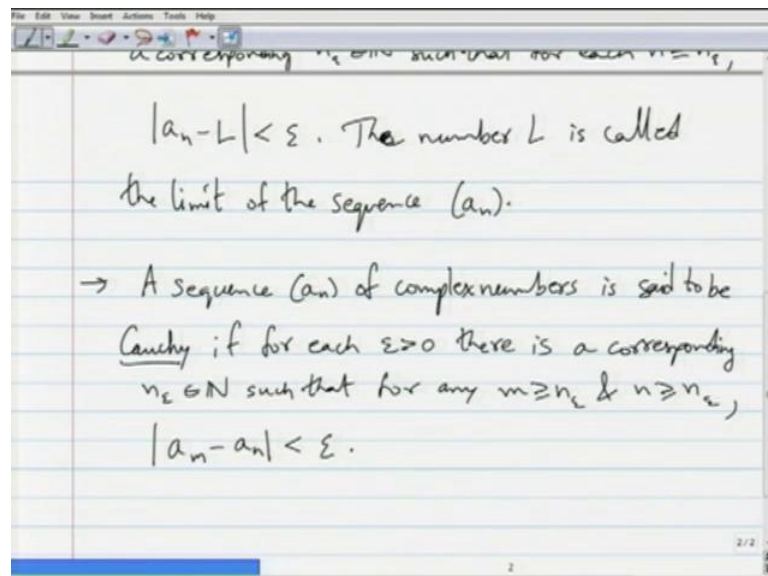 File Edit View Insert Actions Tools Help
a corresponding n_ε ∈ ℕ such that for each n ≥ n_ε,
|a_n - L| < ε. The number L is called
the limit of the sequence (a_n).
→ A sequence (a_n) of complex numbers is said to be
Cauchy if for each ε>0 there is a corresponding
n_ε ∈ ℕ such that for any m ≥ n_ε & n ≥ n_ε,
|a_m - a_n| < ε.
2/2
2